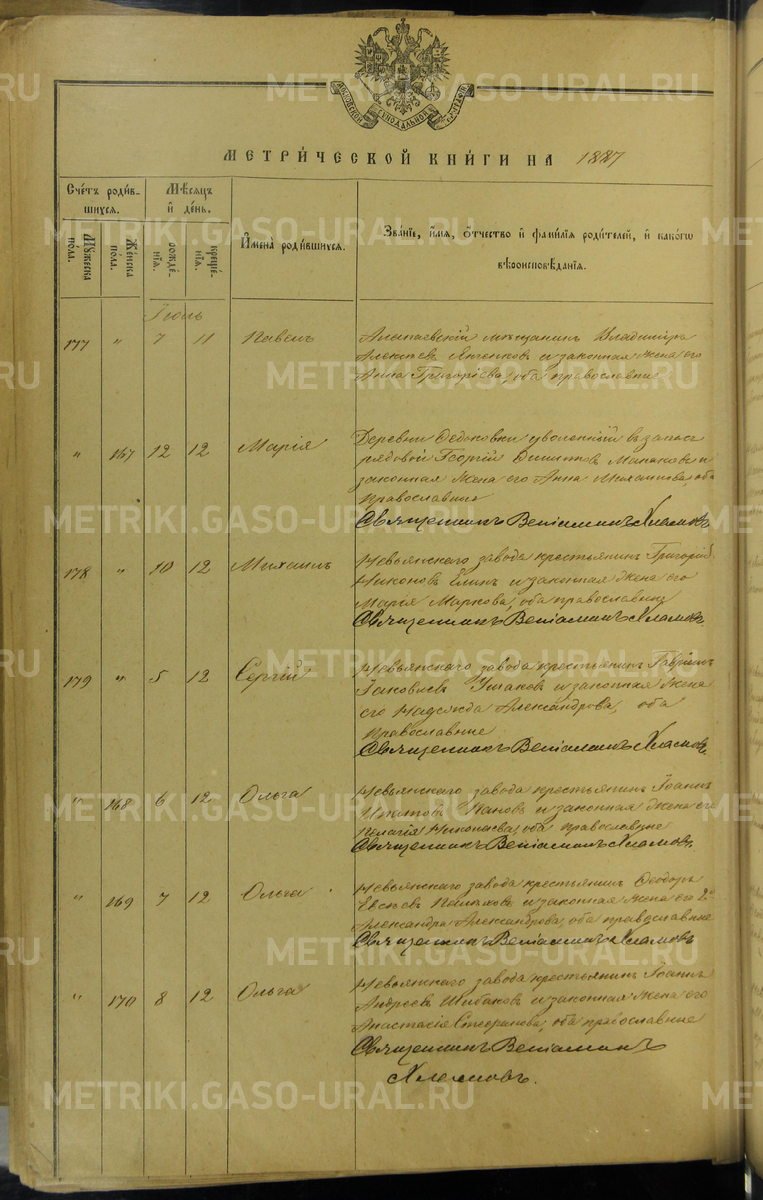 МЕТРИЧЕСКОЙ КНИГИ НА 1887
Счетъ родив-
шихся.
Мужеска пола.
Женска пола.
Мѣсяцъ
и день.
рожде-
нія.
креще-
нія.
Имена родившихся.
Званіе, имя, отчество и фамилія родителей, и какого
вѣроисповѣданія.
Іюль
177 " 7 11 Павелъ
Алапаевскій мѣщанинъ Владиміръ
Алексѣевъ и законная жена его
Анна Григоріева, оба православные
" 167 12 12 Марія
Деревни уволенный въ запасъ
рядовой Георгій и
законная жена его Анна оба
православные
Священникъ Веніаминъ Хламовъ
178 " 10 12 Михаилъ
Невьянскаго завода крестьянинъ Григорій
Никоновъ и законная жена его
Марія Маркова, оба православные
Священникъ Веніаминъ Хламовъ.
179 " 5 12 Сергій
Невьянскаго завода крестьянинъ Гавріилъ
Іаковлевъ Ушаковъ и законная жена
его Надежда Александрова, оба
православные
Священникъ Веніаминъ Хламовъ.
" 168 6 12 Ольга
Невьянскаго завода крестьянинъ Іоаннъ
и законная жена его
Пелагія Николаева, оба православные
Священникъ Веніаминъ Хламовъ.
" 169 7 12 Ольга
Невьянскаго завода крестьянинъ Ѳеодоръ
и законная жена его
Александра Александрова, оба православные
Священникъ Веніаминъ Хламовъ
" 170 8 12 Ольга
Невьянскаго завода крестьянинъ Іоаннъ
Андреевъ Шибаковъ и законная жена его
Анастасія Стефанова, оба православные
Священникъ Веніаминъ
Хламовъ.
METRIKI.GASO-URAL.RU